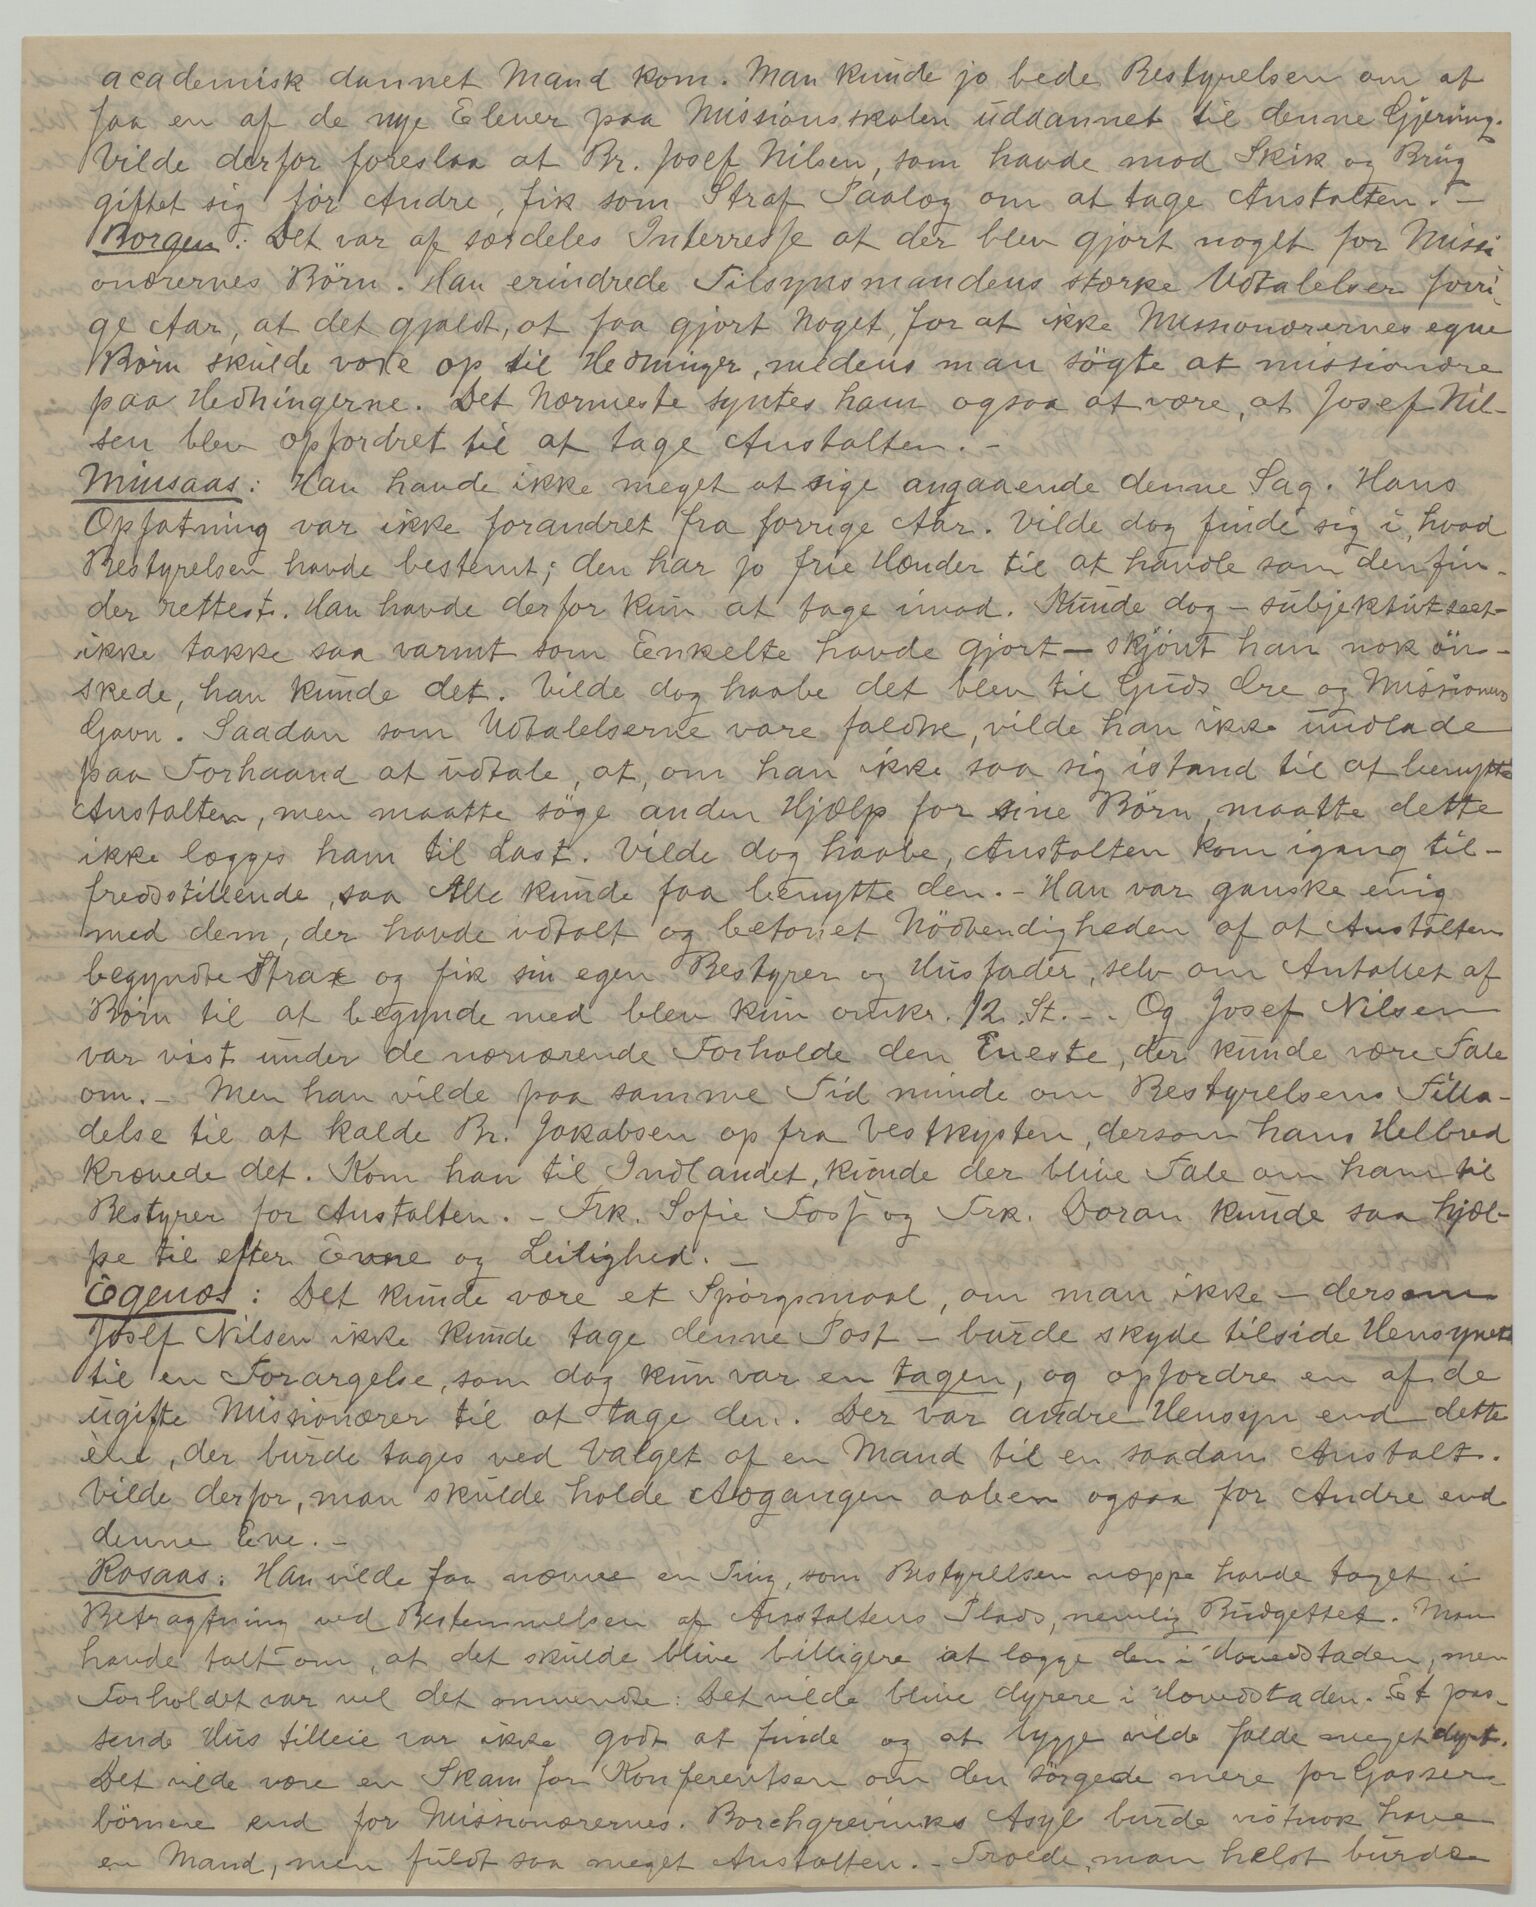 academisk dannet Mand kom. Man kunde jo bede Bestyrelsen om at
faa en af de nye Elever paa Missionsskolen uddannet til denne Gjerning.
Vilde derfor foreslaa at Br. Josef Nilsen, som havde mod Skik og Brug
giftet sig før Andre, fik som Straf Paalæg om at tage Anstalten. –
Borgen: Det var af særdeles Interresse at der blev gjort noget for Missi
onærernes Børn. Han erindrede Tilsynsmandens stærke Udtalelser forri-
ge Aar, at det gjaldt, at faa gjort noget, for at ikke Missionærernes egne
Børn skulde voxe op til Hedninger, medens man søgte at missionære
paa Hedningerne. Det Nærmeste syntes ham ogsaa at være, at Josef Nil-
sen blev opfordret til at tage Anstalten. –
Minsaas: Han havde ikke meget at sige angaaende denne Sag. Hans
Opfatning var ikke forandret fra forrige Aar. Vilde dog finde sig i, hvad
Bestyrelsen havde bestemt; den har jo frie Hænder til at handle som den fin-
der rettest. Han havde derfor kun at tage imod. Kunde dog – subjektivt seet –
ikke takke saa varmt som Enkelte havde gjort – skjønt han nok øn-
skede, han kunde det. Vilde dog haabe det blev til Guds Ære og Missionens
Gavn. Saadan som Udtalelserne vare faldne, vilde han ikke undlade
paa Forhaand at udtale, at, om han ikke saa sig istand til at benytte
Anstalten, men maatte søge anden Hjælp for sine Børn, maatte dette
ikke lægges ham til Last. Vilde dog haabe, Anstalten kom igang til-
fredsstillende, saa Alle kunde faa benytte den. – Han var ganske enig
med dem, der havde udtalt og betonet Nödvendigheden af at Anstalten
begyndte Strax og fik sin egen Bestyrer og Husfader, selv om Antallet af
Børn til at begynde med blev kun omkr. 12 St. – . Og Josef Nilsen
var vist under de nærværende Forholde den Eneste, der kunde være Tale
om. – Men han vilde paa samme Tid minde om Bestyrelsens Tilla-
delse til at kalde Br. Jakobsen op fra Vestkysten, dersom hans Helbred
krævede det. Kom han til Indlandet, kunde der blive Tale om ham til
Bestyrer for Anstalten. – Frk. Sofie og Frk. Doran kunde saa hjæl-
pe til efter Evne og Leilighed. –
Egenæs: Det kunde være et Spørgsmaal, om man ikke – dersom
Josef Nilsen ikke kunde tage denne Post – burde skyde tilside Hensynet
til en Forargelse, som dog kun var en tagen, og opfordre en af de
ugifte Missionærer til at tage den. Der var andre Hensyn end dette
ene, der burde tages ved Valget af en Mand til en saadan Anstalt.
Vilde derfor, man skulde holde Adgangen aaben ogsaa for Andre end
denne Ene. –
Rosaas: Han vilde faa nævne en Ting, som Bestyrelsen næppe havde taget i
Betragtning ved Bestemmelsen af Anstaltens Plads, nemlig Budgettet. Man
havde talt om, at det skulde blive billigere at lægge den i Hovedstaden, men
Forholdet var vel det omvendte: Det vilde blive dyrere i Hovedstaden. Et pas-
sende Hus tilleie var ikke godt at finde og at bygge vilde falde meget dyrt.
Det vilde være en Skam for Konferentsen om den sørgede mere for Gasser-
börnene end for Missionærernes. Borchgrevinks Asyl burde vistnok have
en Mand, men fuldt saa meget Anstalten. – Troede, man helst burde